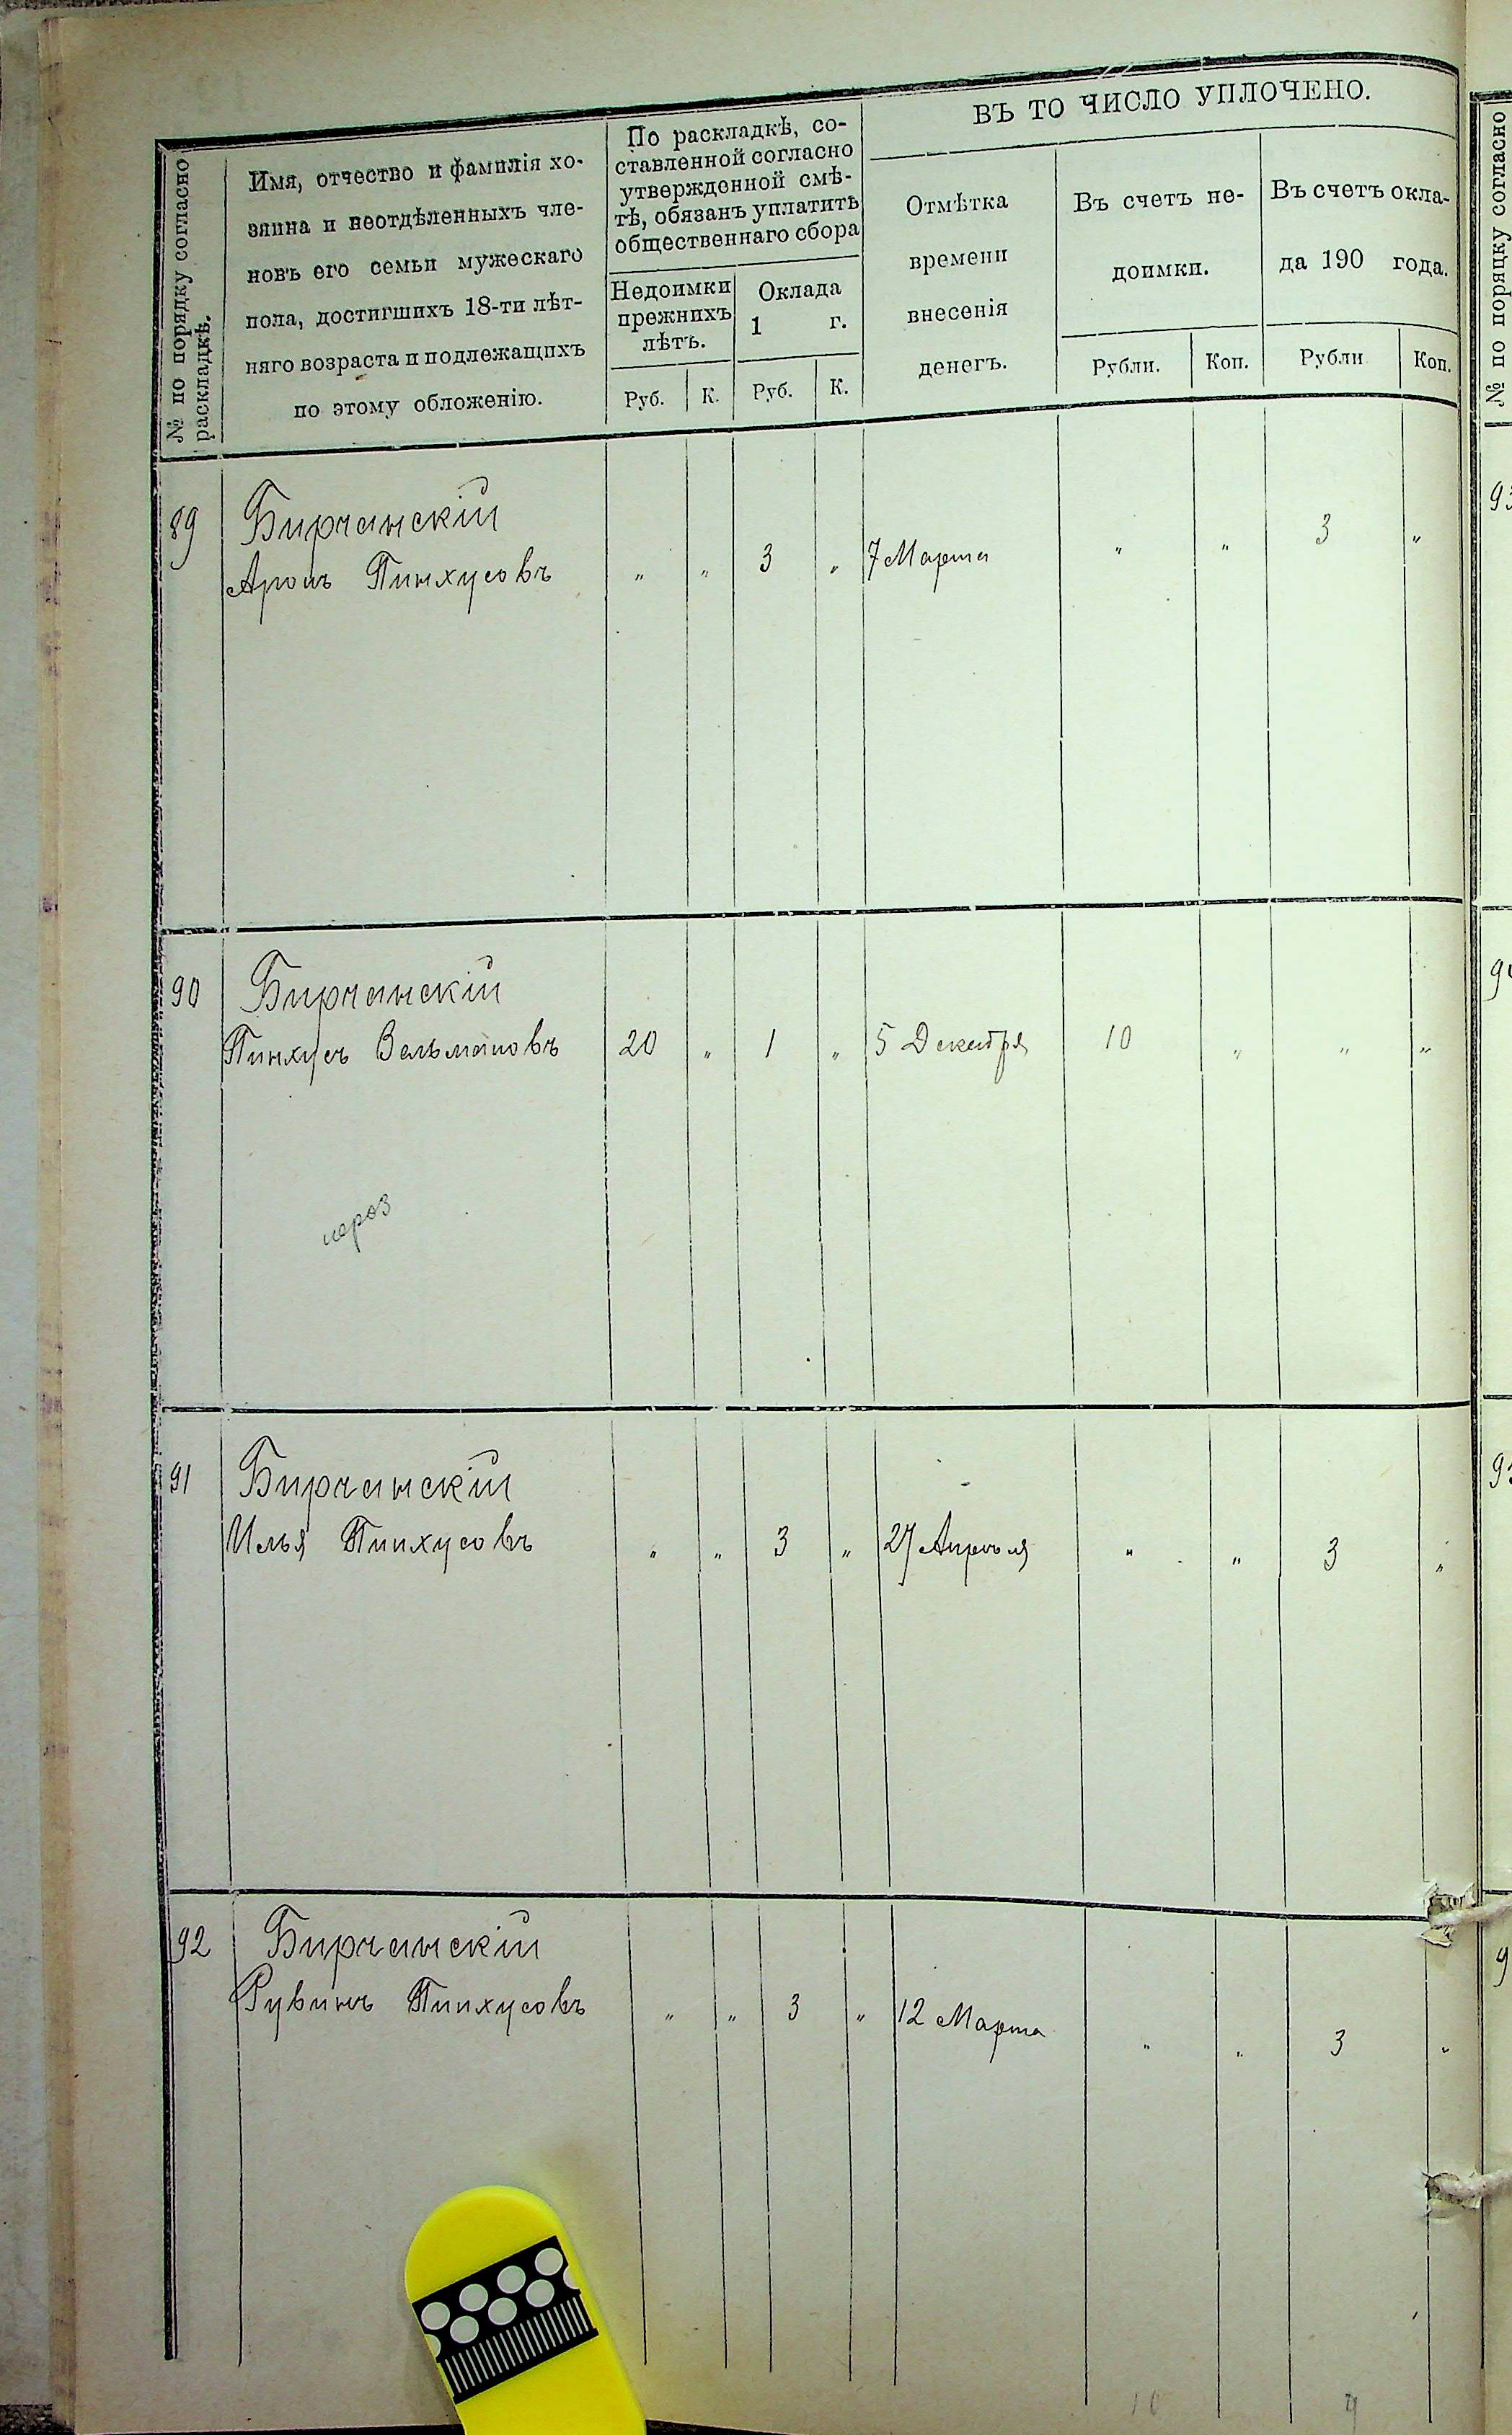 ВЪ ТО ЧИСЛО УПЛОЧЕНО.
№ по порядку согласно
раскладкѣ.
Имя, отчество и фамилія хо-
зяина и неотдѣленныхъ чле-
новъ его семьи мужескаго
пола, достигшихъ 18-ти лѣт-
няго возраста и подлежащихъ
по этому обложенію.
По раскладкѣ, со-
ставленной согласно
утвержденной смѣ-
тѣ, обязанъ уплатить
общественнаго сбора
Недоимки
прежнихъ
лѣтъ.
Оклада
1 г.
Руб. К. Руб. К.
Отмѣтка
времени
внесенія
денегъ.
Въ счетъ не-
доимки.
Рубли. Коп.
Въ счетъ окла-
да 190 года.
Рубли Коп.
№ по порядку согласно
89 Бирчанскій
Аронъ Пинхусовъ " " 3 " 7 Марта " " 3 "
90 Бирчанскій
Пинхусъ Зельмановъ 20 " 1 " 5 Декабря 10 " " "
91 Бирчанскій
Илья Пинхусовъ " " 3 " 27 Апрѣля " " 3 "
92 Бирчанскій
Рувинъ Пинхусовъ " " 3 " 12 Марта " " 3 "
10 9